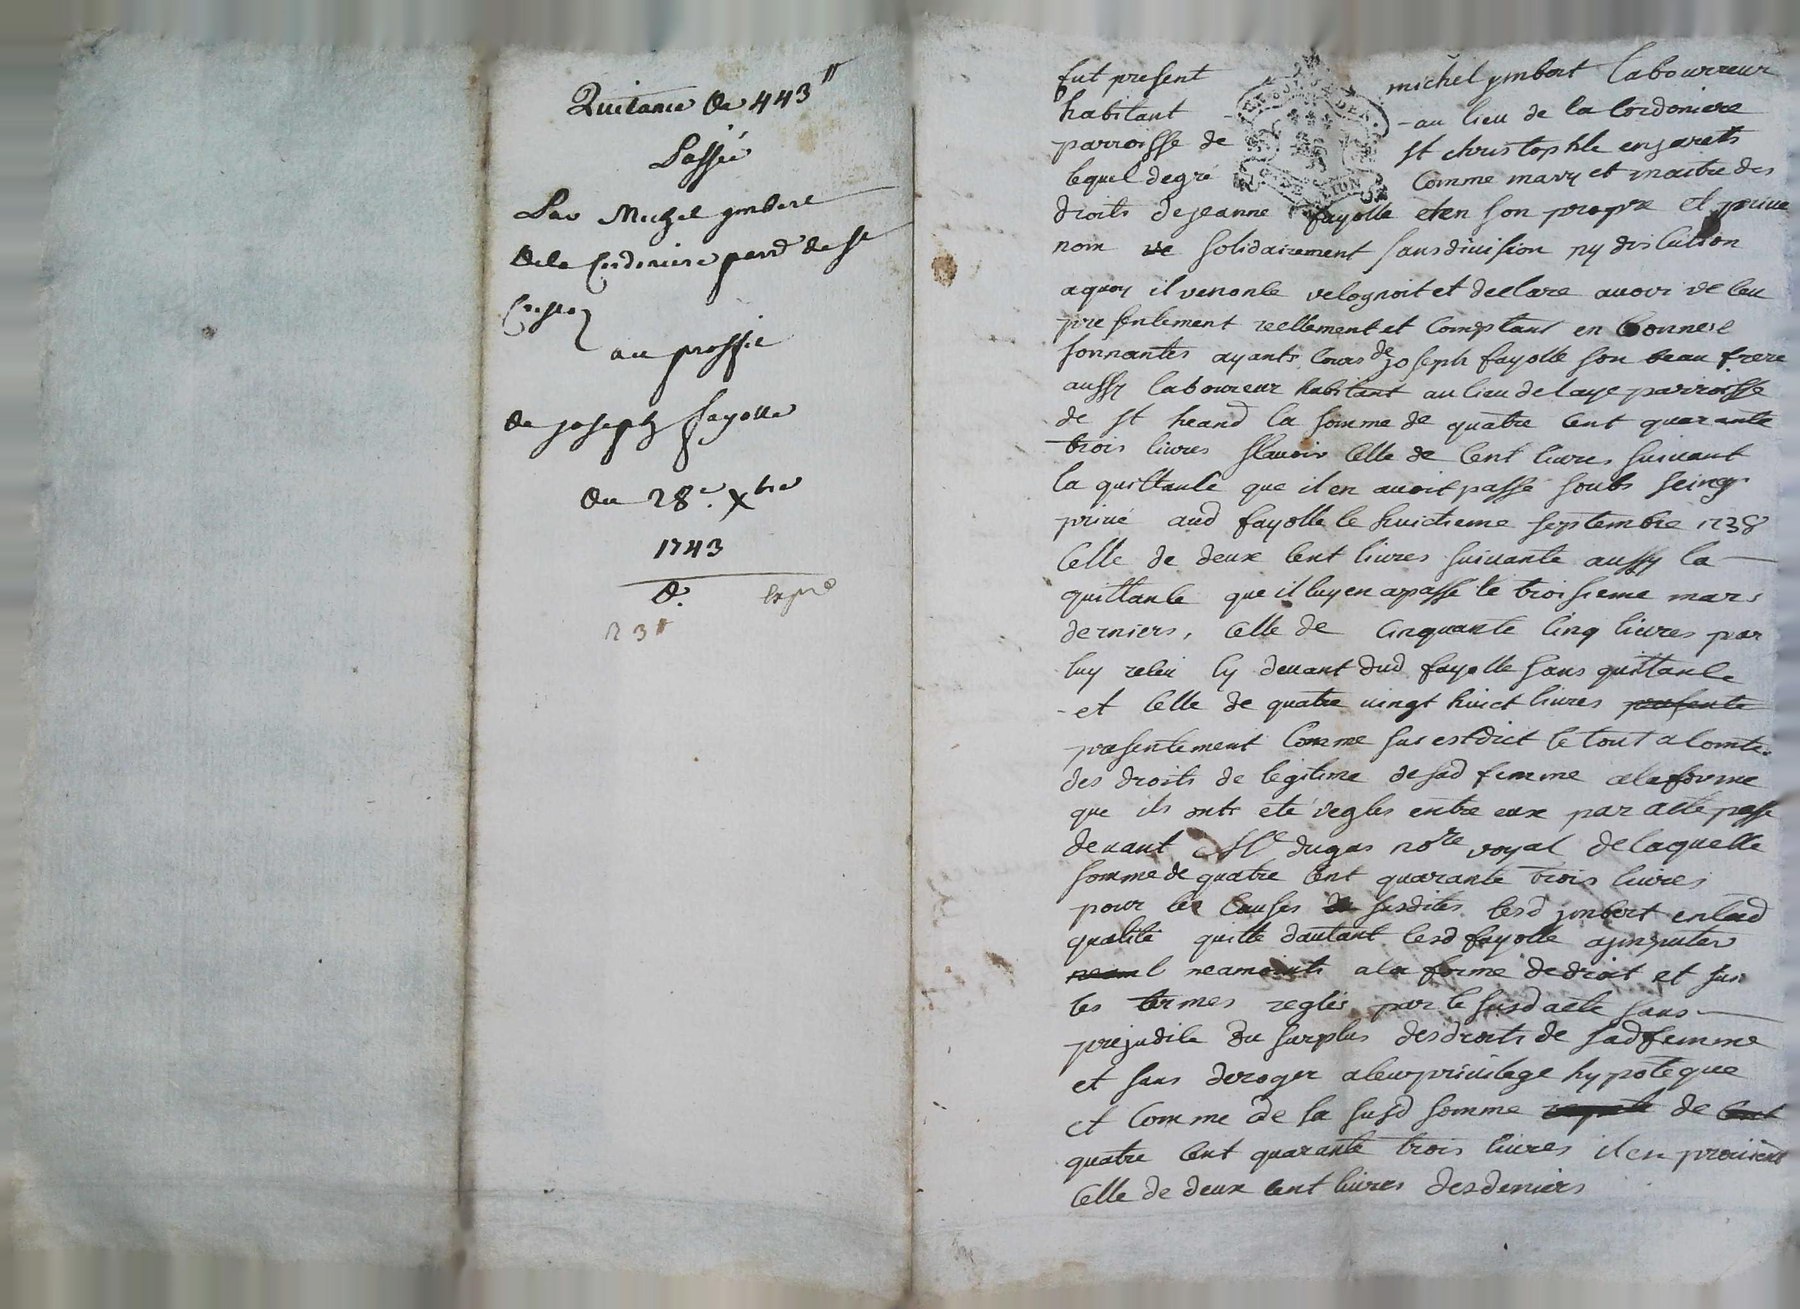 Quitance de 443 ll
Passée
Par Michel ymbert
De la Cordoniere parr. de St
Cristo
au proffit
de joseph fayolle
du 28e Xbre
1743
d. expé
fut present michel ymbert labourreur
habitant au lieu de la Cordoniere
parroisse de St christophle en jarets
lequel de gré Comme mary et maitre des
droits de jeanne fayolle et en son propre et prive
nom solidairement sans division ny discution
a quoy il renonce recognoit et declare avoir receu
presentement reellement et Comptant en
sonnantes ayants cours de joseph fayolle son beau frere
aussy laboureur habitant au lieu de laye parroisse
de st heand la somme de quatre cent quarante
trois livres scavoir celle de cent livres suivant
la quittance que il en avoit passé soubs seing
privé aud fayolle le huictieme septembre 1738
celle de deux cent livres suivante aussy la
quittance que il luy en a passé le troisieme mars
derniers, celle de cinquante cinq livres par
luy receu cy devant dud fayolle sans quittance
et celle de quatre vingt huict livres presente
presentement Comme sus est dict le tout a comte
des droits de legitime de sad femme a la forme
que ils ont eté reglés entre eux par acte passé
devant Me dugas nore royal de laquelle
somme de quatre cent quarante trois livres
pour les causes susdites led ymbert en lad
qualité quitte dautant led fayolle a imputer
neamoints a la forme de droit et sus
les termes reglés par le susd acte sans
prejudice du surplus des droits de sad femme
et sans deroger a leur privilege hypoteque
et Comme de la susd somme de
quatre cent quarante trois livres il en provient
celle de deux cent livres des deniers